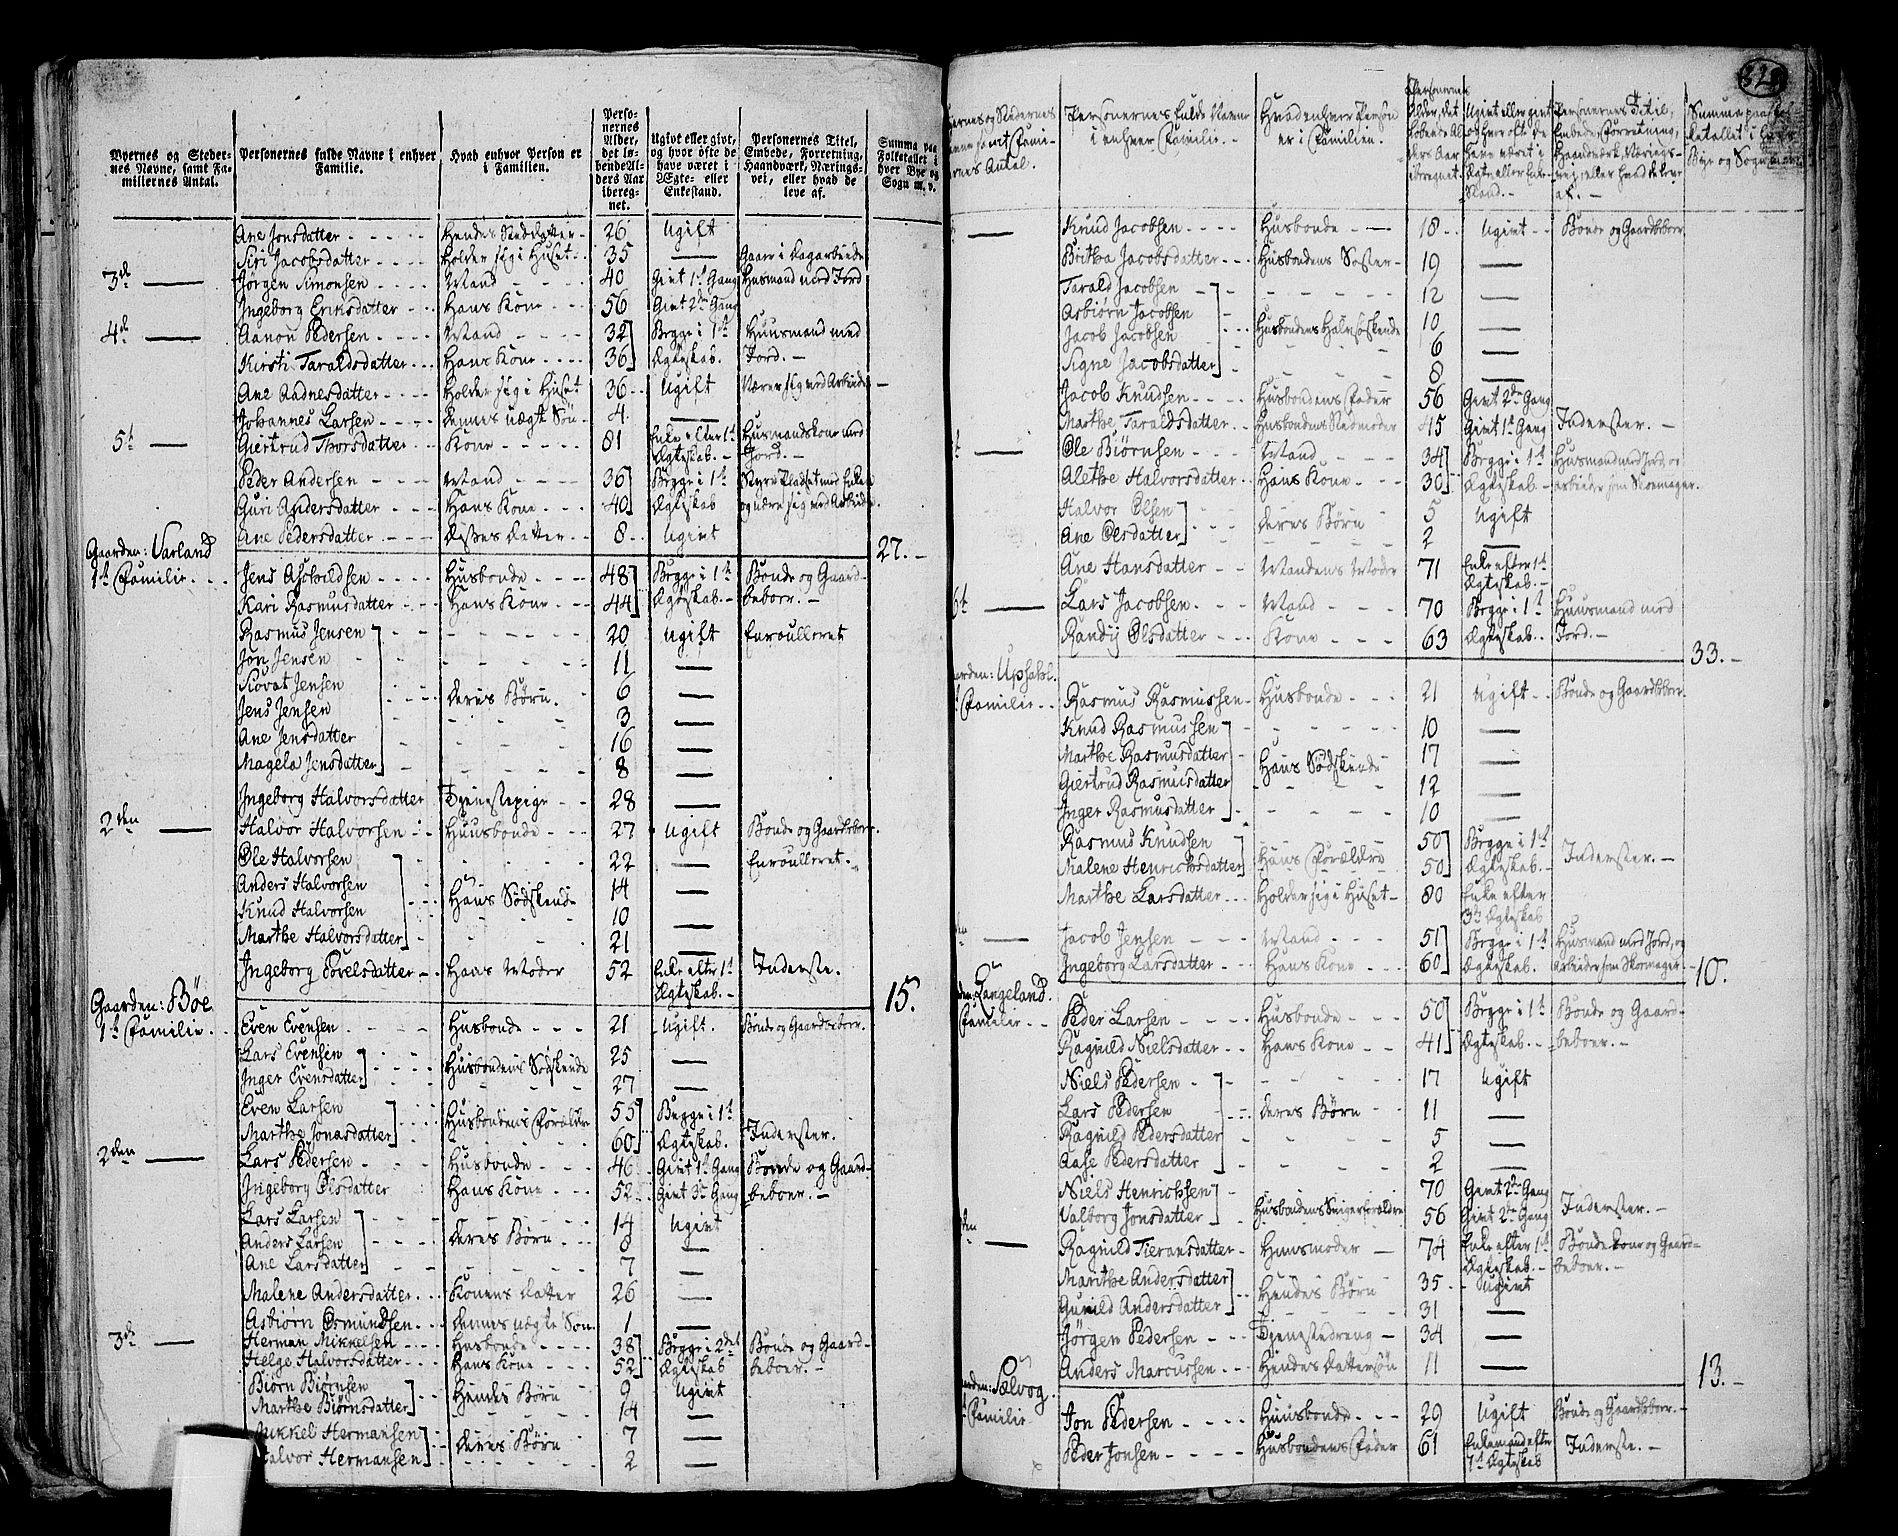 Byernes og Steder-
nes Navne, samt Fa-
miliernes Antal.
Personernes fulde Navne i enhver
Familie.
Hvad enhver Person er
i Familien.
Perso-
nernes
Alder,
det lø-
bende Al-
ders Aar
ibereg-
net.
Ugivt eller givt,
og hvor ofte de
have været i
Ægte- eller
Enkestand.
Personernes Titel,
Embede, Forretning,
Haandværk, Nærings-
vei, eller hvad de
leve af.
Summa paa
Folketallet i
hver Bye og
Sogn m. v.
Ane Jonsdatter Hendes Steddatter 26 Ugift
Siri Jacobsdatter Holder sig i Huset 35 — Gaaer i Dagarbeide
3de — Jørgen Simonsen Mand 40 Givt 1te Gang Husmand med Jord
Ingeborg Eriksdatter Hans Kone 56 Givt 2den Gang
4de — Aanon Pedersen Mand 32 Begge i 1te Huusmand med
Kirsti Taraldsdatter Hans Kone 36 Ægteskab. Jord.
Ane Aadnesdatter Holder sig i Huset 36 Ugift Nærer sig med Arbeide
Johannes Larsen Dennes uægte Søn 4 —
5te — Giertrud Thorsdatter Kone 81 Enke efter 1te Husmandskone med
Ægteskab. Jord.
Peder Andersen Mand 36 Begge i 1te Styre Pladset med Enken
Guri Andersdatter Hans Kone 40 Ægteskab og nære sig med Arbeide
Ane Pedersdatter Disses Datter 8 Ugivt
27.
Gaarden: Varland
1te Familie Jens Aschildsen Husbonde 48 Begge i 1te Bonde og Gaard-
Kari Rasmusdatter Hans Kone 44 Ægteskab. beboer.
Rasmus Jensen 20 Ugift Enroulleret
Jon Jensen 11 —
Siovat Jensen 6 —
Jens Jensen Deres Børn 3 —
Ane Jensdatter 16 —
Magela Jensdatter 8 —
Ingeborg Halvorsdatter Tjenestepige 28 —
2den — Halvor Halvorsen Huusbonde 27 Ugift Bonde og Gaardbeboer
Ole Halvorsen 22 — Enroulleret.
Anders Halvorsen 14 —
Knud Halvorsen Hans Sødskende 10 —
Marthe Halvorsdatter 21 —
Ingeborg Povelsdatter Hans Moder 52 Enke efter 1te Inderste.
Ægteskab.
15.
Gaarden: Bøe
1te Familie Even Evensen Husbonde 21 Ugift. Bonde og Gaardbeboer.
Lars Evensen 25 —
Inger Evensdatter Husbondens Sødskende 27 —
Even Larsen 55 Begge i 1te
Marthe Jonasdatter Husbondens Forældre 60 Ægteskab. Inderster.
2den — Lars Pedersen Husbonde 46 Givt 1te Gang Bonde og Gaard-
Ingeborg Olsdatter Hans Kone 52 Givt 3de Gang beboer.
Lars Larsen 14 Ugivt
Anders Larsen Deres Børn —
Ane Larsdatter 7 —
Malene Andersdatter Konens Datter 26 —
Asbiørn Osmundsen Dennes uægte Søn 1 —
3de — Herman Mikkelsen Husbonde 38 Begge i 2det Bonde og Gaard-
Helge Halvorsdatter Hans Kone 52 Ægteskab beboer.
Biørn Biørnsen 9 Ugivt
Marthe Biørnsdatter Hendes Børn 14 —
Mikkel Hermansen 7 —
Halvor Hermansen Deres Børn 2 —
Personernes fulde Navne
i enhver Familie.
Hvad enhver Person
er i Familien.
Personernes
Alder, det
løbende Al-
ders Aar
ibereegnet.
Ugivt eller givt
og hvor oft de
have været i
Ægte eller Enke-
stand.
Personernes Titel,
Embede, Forretning,
Haandværk, Nærings-
vei, eller hvad de leve
af.
Summa paa Fol-
ketallet i hver
Bye og Sogn
— Knud Jacobsen Husbonde 18 Ugivt Bonde og Gaardbeboer
Britha Jacobsdatter Husbondens Søster 19 —
Tarald Jacobsen 12 —
Asbiørn Jacobsen 10 —
Jacob Jacobsen Husbondens Halvsøskende 6 —
Signe Jacobsdatter 8 —
Jacob Knudsen Husbondens Fader 56 Givt 2den Gang
Marthe Taraldsdatter Husbondens Stedmoder 45 Givt 1te Gang Inderster.
— Ole Biørnsen Mand 34 Begge i 1te Husmand med Jord, og
Alethe Halvorsdatter Hans Kone 30 Ægteskab arbeider som Skoemager.
Halvor Olsen 5 Ugift
Ane Olsdatter Deres Børn 2 —
Ane Hansdatter Mandens Moder 71 Enke efter 1te
Ægteskab.
6te — Lars Jacobsen Mand 70 Begge i 1te Huusmand med
Randij Olsdatter Kone 63 Ægteskab. Jord.
33.
Gaarden: Upsahl.
Familie Rasmus Rasmussen Husbonde 21 Ugift Bonde og Gaardbeboer
Knud Rasmussen 10 —
Marthe Rasmusdatter 17 —
Giertrud Rasmusdatter Hans Sødskende 12 —
Inger Rasmusdatter 10 —
Rasmus Knudsen 50 Begge i 1te
Malene Henrichsdatter Hans Forældre 50 Ægteskab. Inderster.
Marthe Larsdatter Holder sig i Huset 80 Enke efter
3de Ægteskab
— Jacob Jensen Mand 51 Begge i 1te Husmand med Jord, og
Ingeborg Larsdatter Hans Kone 60 Ægteskab. arbeider som Skoemager.
10.
Langeland.
Familie Peder Larsen Husbonde 50 Begge i 1te Bonde og Gaard-
Ragnild Nielsdatter Hans Kone 41 Ægteskab. beboer.
Niels Pedersen 17 Ugift
Lars Pedersen Deres Børn 11 —
Ragnild Pedersdatter 5 —
Aase Pedersdatter 2 —
Niels Henrichsen 70 Givt 2den Gang
Valborg Jonsdatter Husbondens Svigerforældre 56 Givt 2den Gang Inderster.
— Ragnild Tieransdatter Huusmoder 74 Enke efter 1te Bonde kone og Gaard-
Ægteskab. beboer.
Marithe Andersdatter 35 Ugivt
Gunild Andersdatter Hendes Børn 31 —
Jørgen Pedersen Tjenestedreng 34 —
Anders Marcussen Hendes Dattersøn 11 —
13.
Sælvog.
Familie Jon Pedersen Huusbonde 29 Ugift Bonde og Gaardbeboer.
Peder Jonsen Husbondens Fader 61 Enkemand efter Inderste.
1te Ægteskab